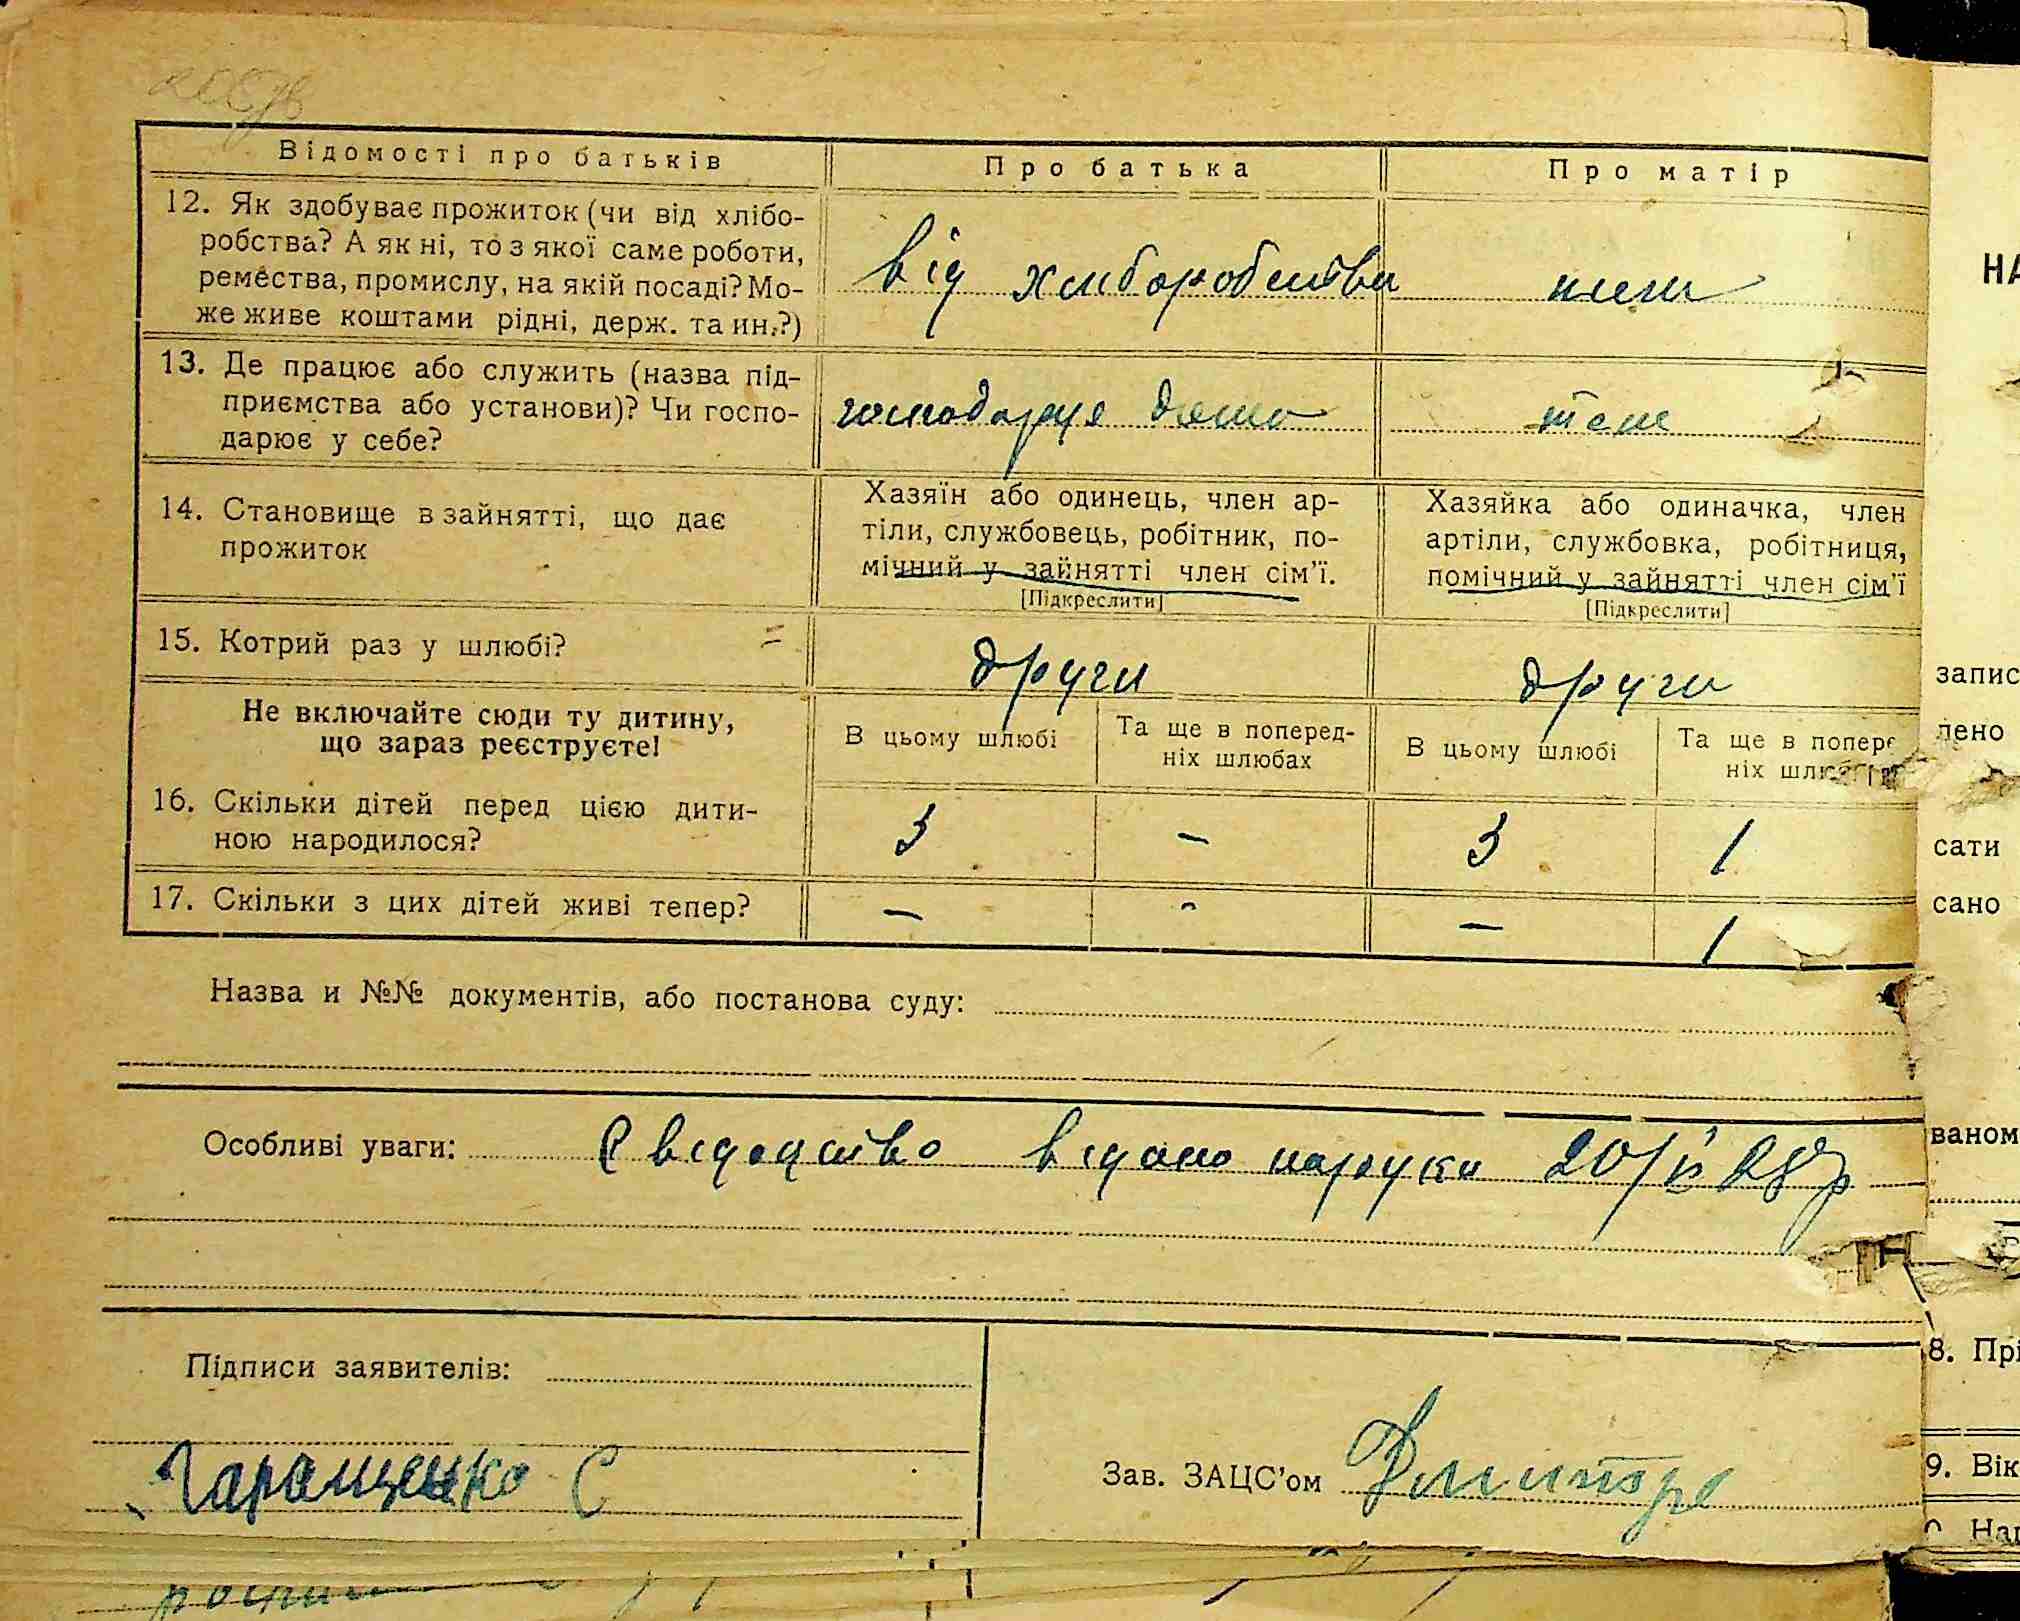 Відомості про батьків Про батька Про матір
12. Як здобуває прожиток (чи від хлібо-
робства? А як ні, то з якої саме роботи,
ремества, промислу, на якій посаді? Мо-
же живе коштами рідні, держ. та ин.?)
від хлиборобства
13. Де працює або служить (назва під-
приємства або установи)? Чи госпо-
дарює у себе?
господарує дома теж
14. Становище в зайнятті, що дає
прожиток
Хазяїн або одинець, член ар-
тіли, службовець, робітник, по-
мічний у зайнятті член сім'ї.
[Підкреслити]
Хазяйка або одиначка, член
артіли, службовка, робітниця,
помічний у зайнятті член сім'ї
[Підкреслити]
15. Котрий раз у шлюбі? други други
Не включайте сюди ту дитину,
що зараз реєструєте!
В цьому шлюбі
Та ще в поперед-
ніх шлюбах
В цьому шлюбі
Та ще в попере
ніх шлю
16. Скільки дітей перед цією дити-
ною народилося?
3 - 3 1
17. Скільки з цих дітей живі тепер? - - - 1
Назва и №№ документів, або постанова суду:
Особливі уваги: Свідоцтво відано наруки 20/
Підписи заявителів:
Гаращенко С
Зав. ЗАЦС'ом
НА
запис
лено
сати
сано
ваном
8. Прі
9. Вік
Наг